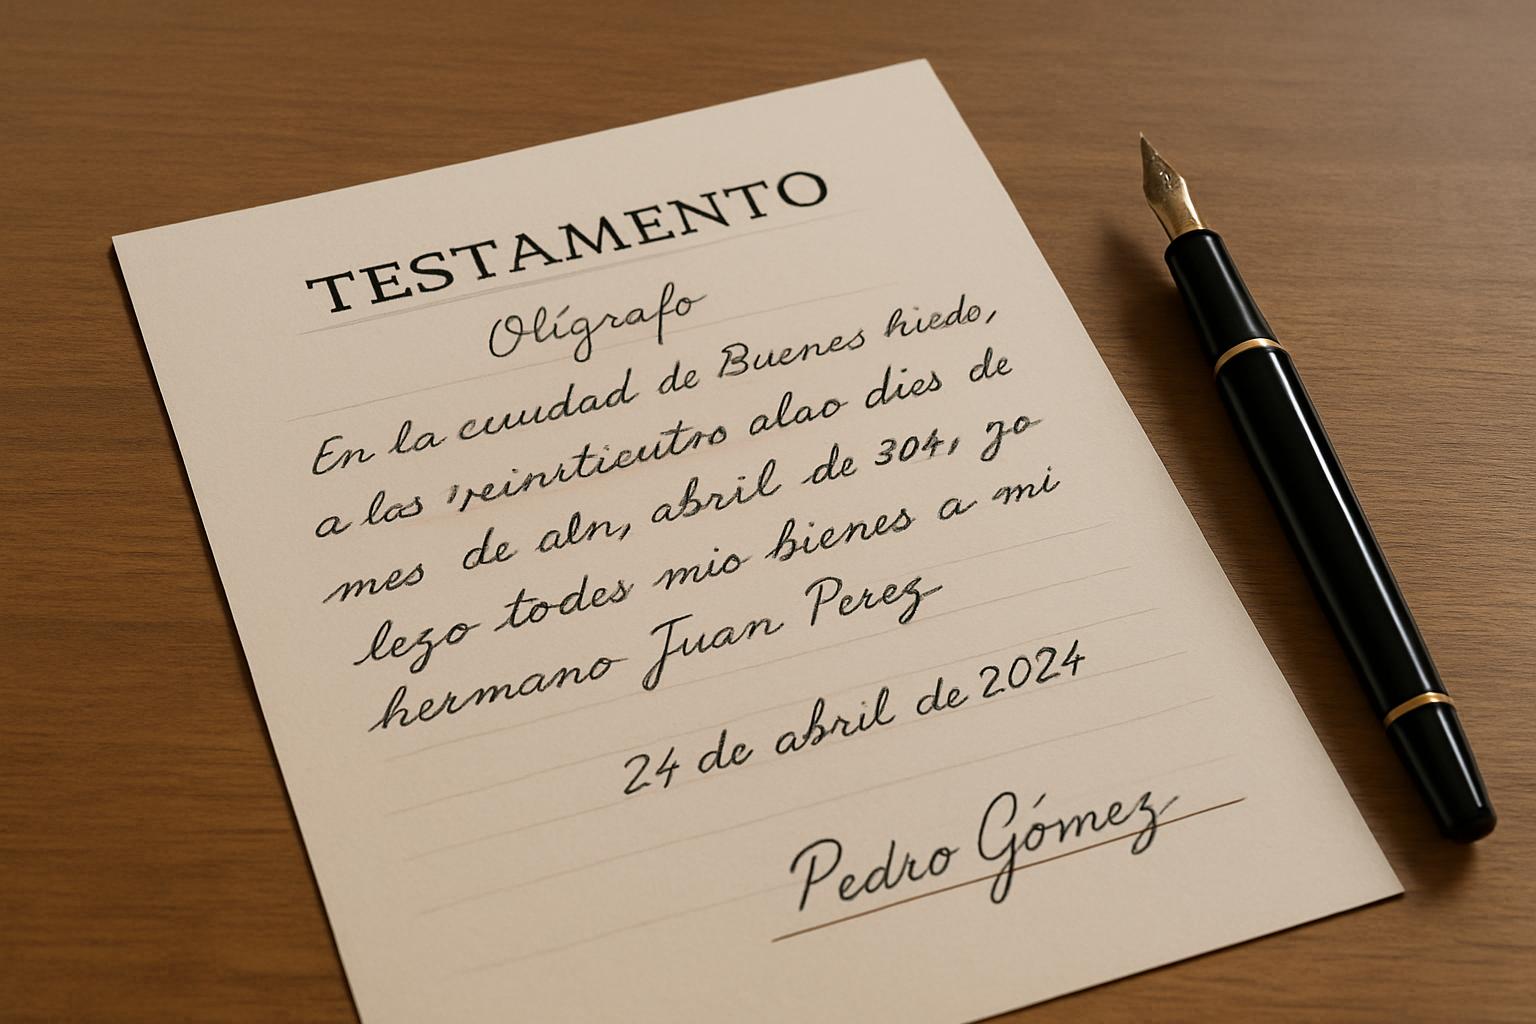 TESTAMENTO
Olígrafo
En la cuudad de Buenes hiedo,
a las veinrticutro alao dies de
mes de aln, abril de 304, yo
lezo todes mio bienes a mi
hermano Juan Perez
24 de abril de 2024
Pedro Gómez